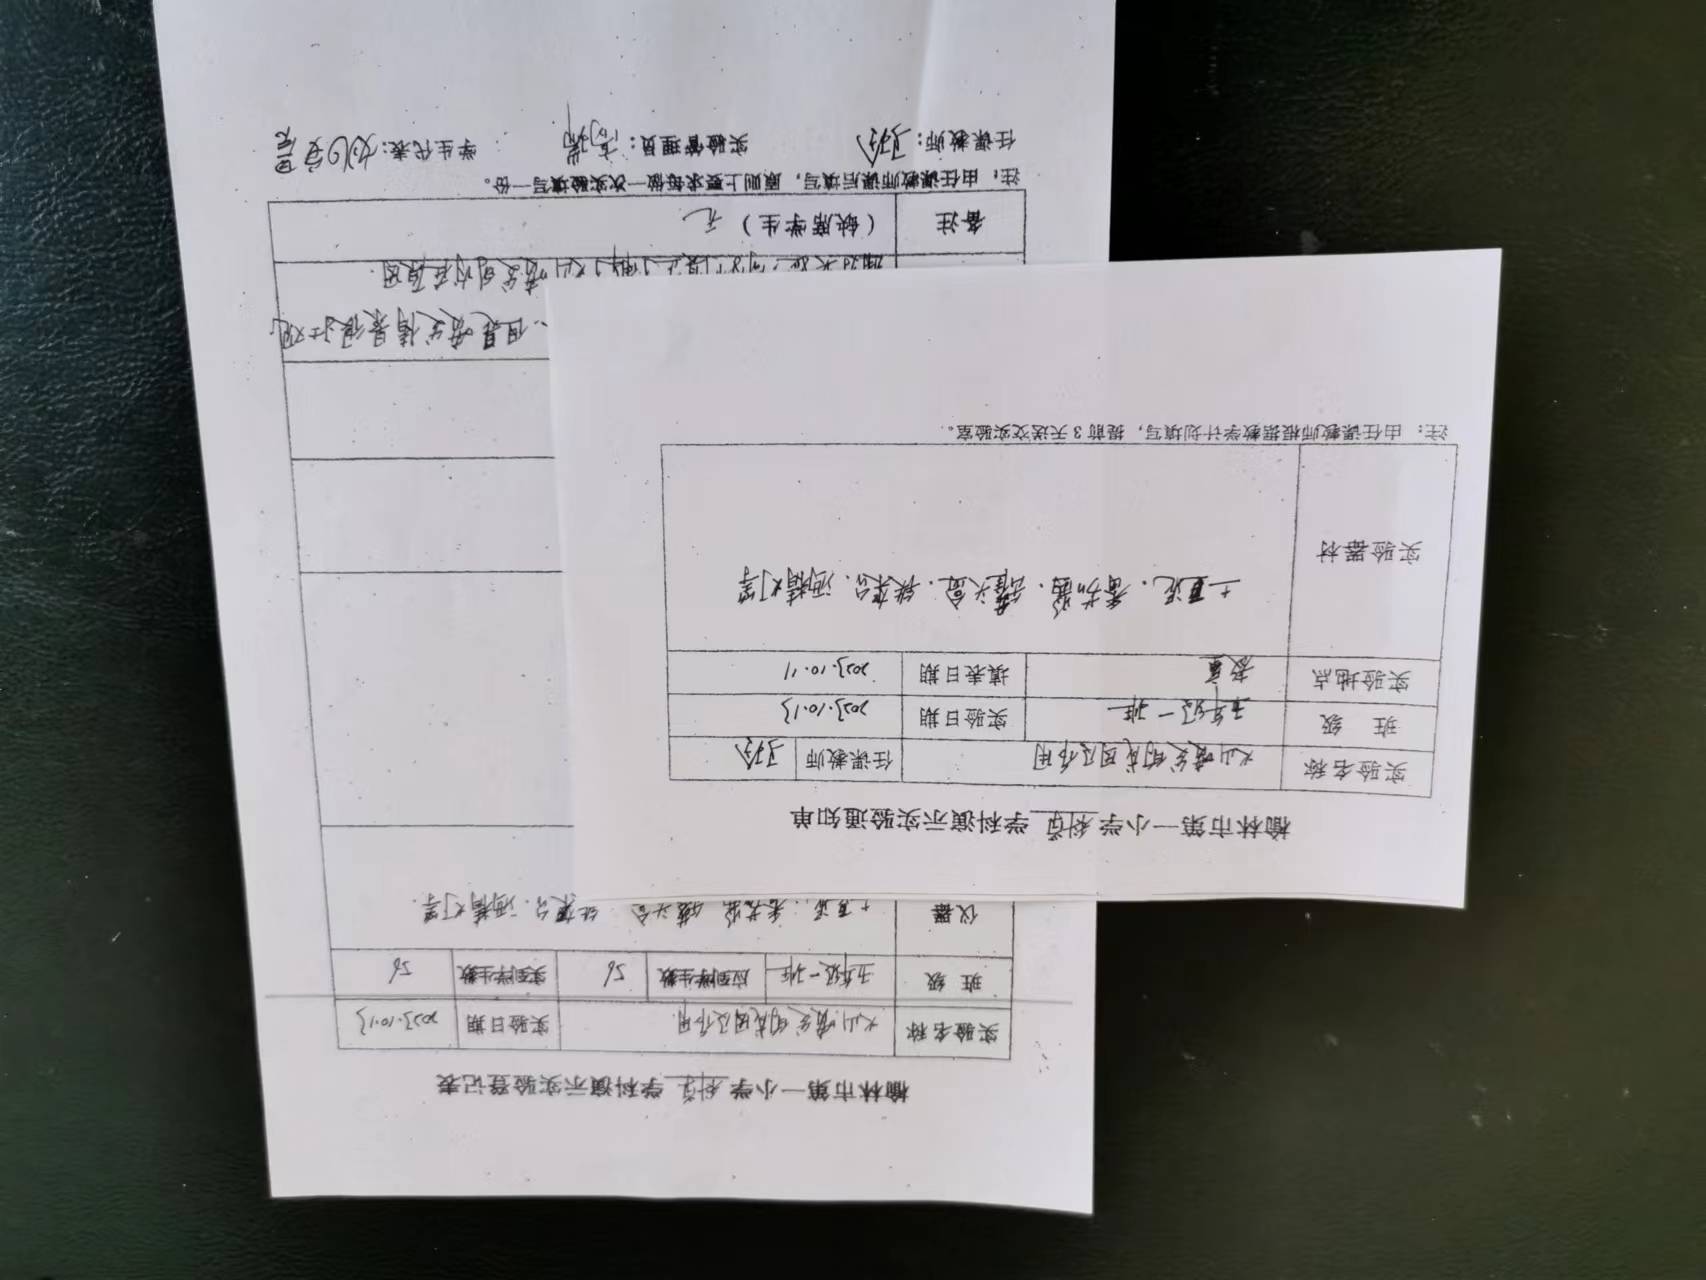 榆林市第一小学 科学 学科演示实验通知单
实验名称 火山喷发的成因及作用 任课教师
班 级 五年级一班 实验日期 2023.10.13
实验地点 教室 填表日期 2023.10.11
实验器材 土豆泥、番茄酱、罐头盒、铁架台、酒精灯等
注：由任课教师根据教学计划填写，提前3天送交实验室。
榆林市第一小学 科学 学科演示实验登记表
实验名称 火山喷发的成因及作用 实验日期 2023.10.13
班 级 五年级一班 应到学生数 56 实到学生数 56
仪器 土豆泥、番茄酱、罐头盒、铁架台、酒精灯等
但是喷发情景很壮观
火山喷发的内在原因.
备注 （缺席学生）无
注：由任课教师课后填写，原则上要求每做一次实验填写一份。
任课教师： 实验管理员： 学生代表：